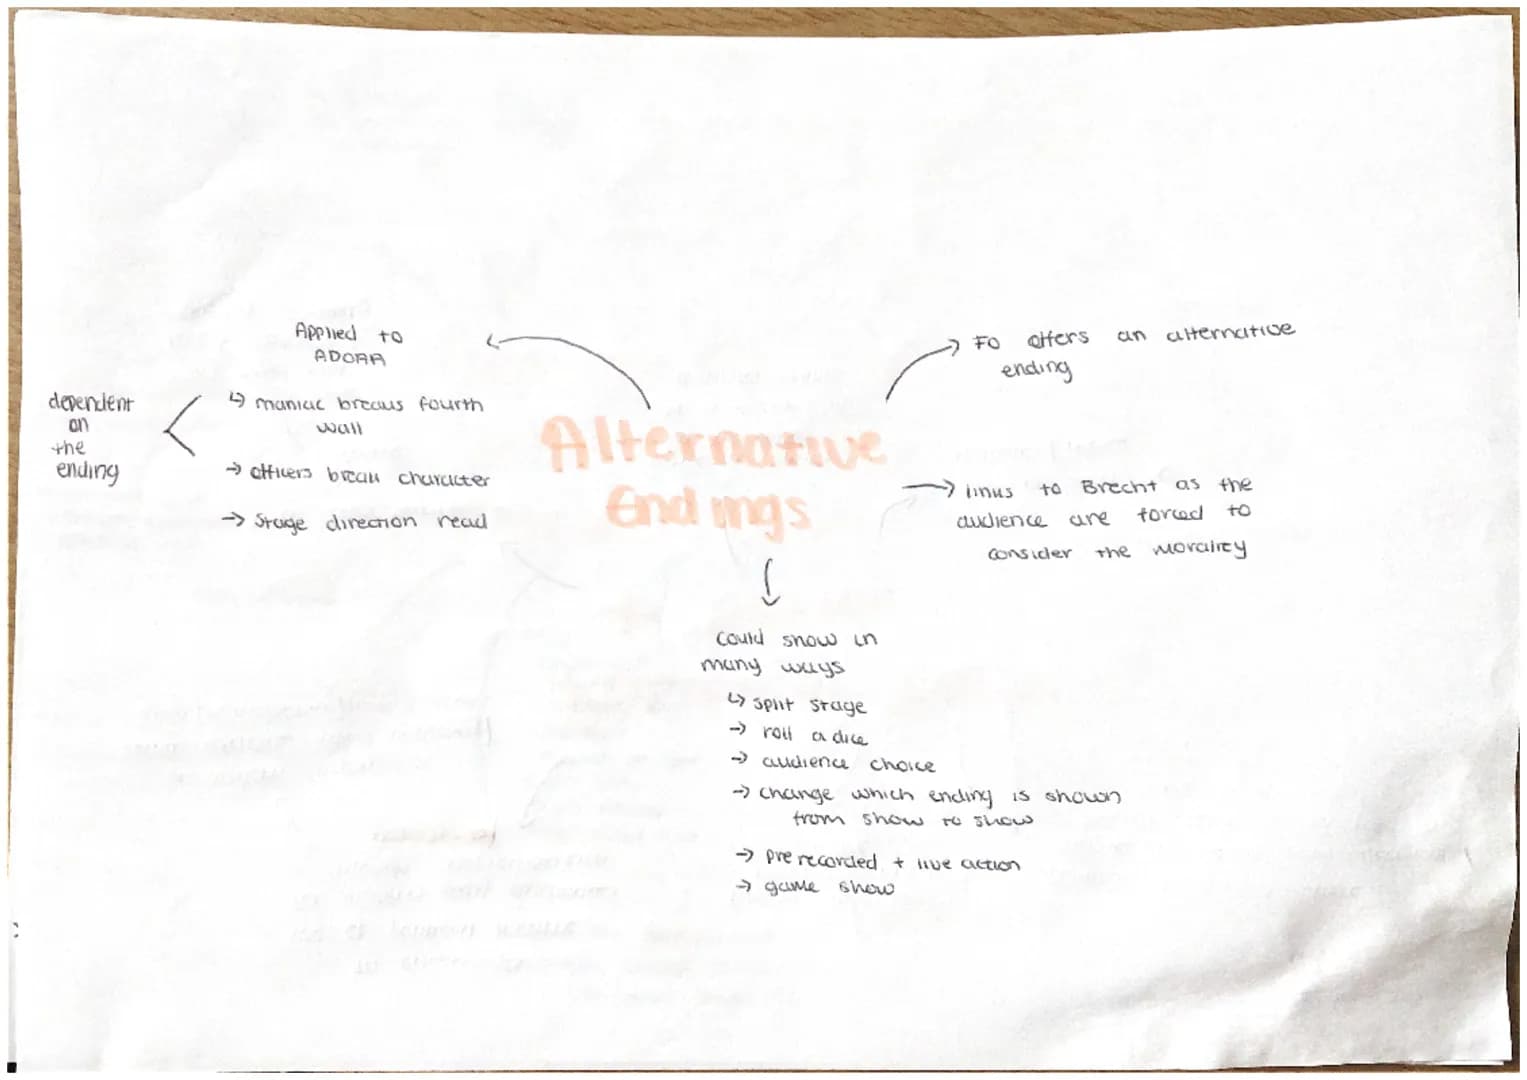 Alternative
Endings
Applied to
ADOAA
↳ maniac breaks fourth
wall
→ officers break character
→ stage direction read
dependent
on
the
ending
→ Fo offers an alternative
ending
→ links to Brecht as the
audience are forced to
consider the morality
could show in
many ways
↳ split stage
→ roll a dice
→ audience choice
→ change which ending is shown
from show to show
→ pre recorded + live action
→ game show